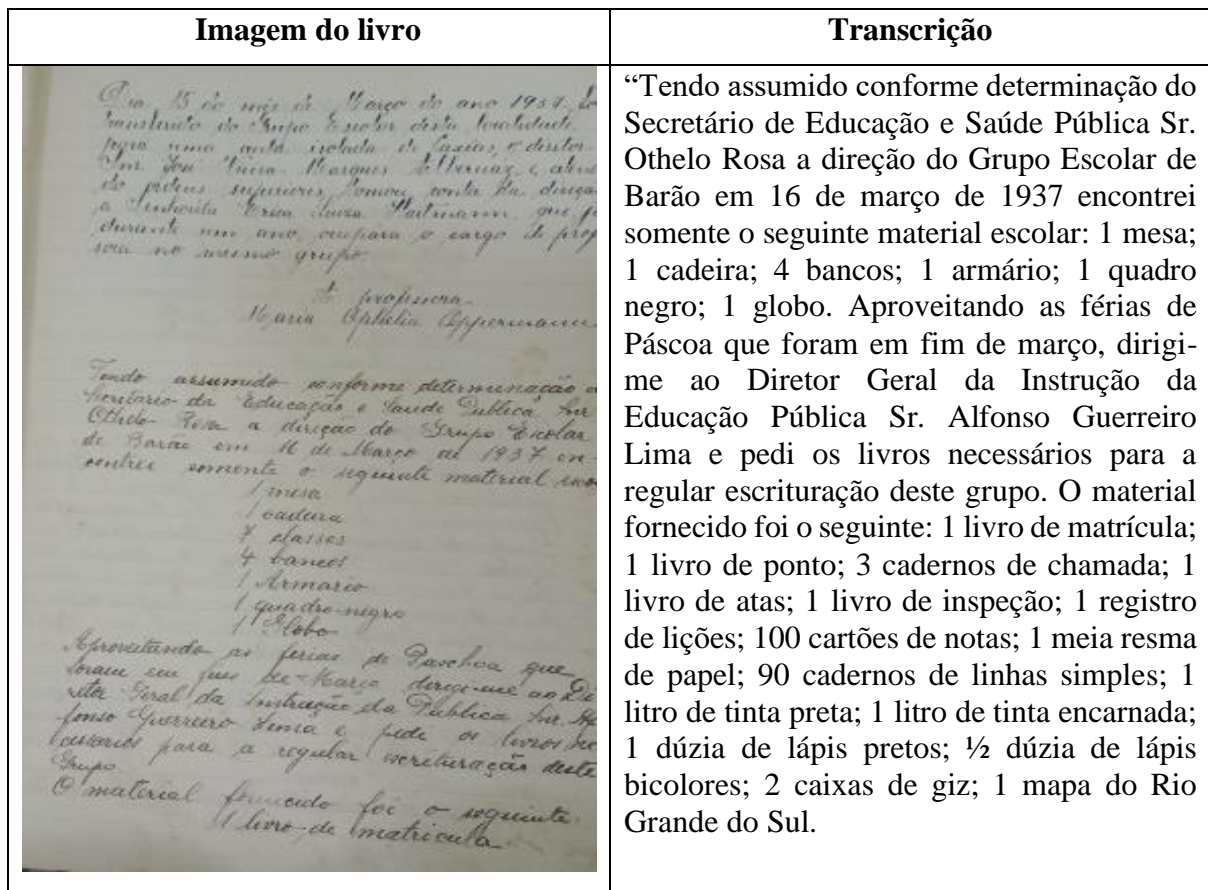 Imagem do livro
Transcrição
Dia 15 do mês de Março do ano 1937, fo
transferido do Grupo Escolar desta localidade
para uma aula isolada de Caxias, o diretor
Snr. José Vieira Marques e
do ordens superiores, tomou conta da direção
a Senhorita Erica Luiza Hartmann, que já
durante um ano, ocupara o cargo de prof
sora no mesmo grupo.
A professora
Maria Ophelia Oppermann
Tendo assumido conforme determinação
Secretario da Educação e Saude Publica Snr
Othelo Rosa a direção do Grupo Escolar
de Barão em 16 de Março de 1937 en-
contrei somente o seguinte material esco
1 mesa
1 cadeira
7 classes
4 bancos
1 Armario
1 quadro-negro
1 Globo
Aproveitando as ferias de Paschoa que
foram em fins de Março dirigi-me ao Di
retor Geral da Instrução da Publica Snr. Al
fonso Guerreiro Lima e pedi os livros ne
cessarios para a regular escrituração deste
Grupo.
O material fornecido foi o seguinte:
1 livro de matricula
“Tendo assumido conforme determinação do
Secretário de Educação e Saúde Pública Sr.
Othelo Rosa a direção do Grupo Escolar de
Barão em 16 de março de 1937 encontrei
somente o seguinte material escolar: 1 mesa;
1 cadeira; 4 bancos; 1 armário; 1 quadro
negro; 1 globo. Aproveitando as férias de
Páscoa que foram em fim de março, dirigi-
me ao Diretor Geral da Instrução da
Educação Pública Sr. Alfonso Guerreiro
Lima e pedi os livros necessários para a
regular escrituração deste grupo. O material
fornecido foi o seguinte: 1 livro de matrícula;
1 livro de ponto; 3 cadernos de chamada; 1
livro de atas; 1 livro de inspeção; 1 registro
de lições; 100 cartões de notas; 1 meia resma
de papel; 90 cadernos de linhas simples; 1
litro de tinta preta; 1 litro de tinta encarnada;
1 dúzia de lápis pretos; ½ dúzia de lápis
bicolores; 2 caixas de giz; 1 mapa do Rio
Grande do Sul.